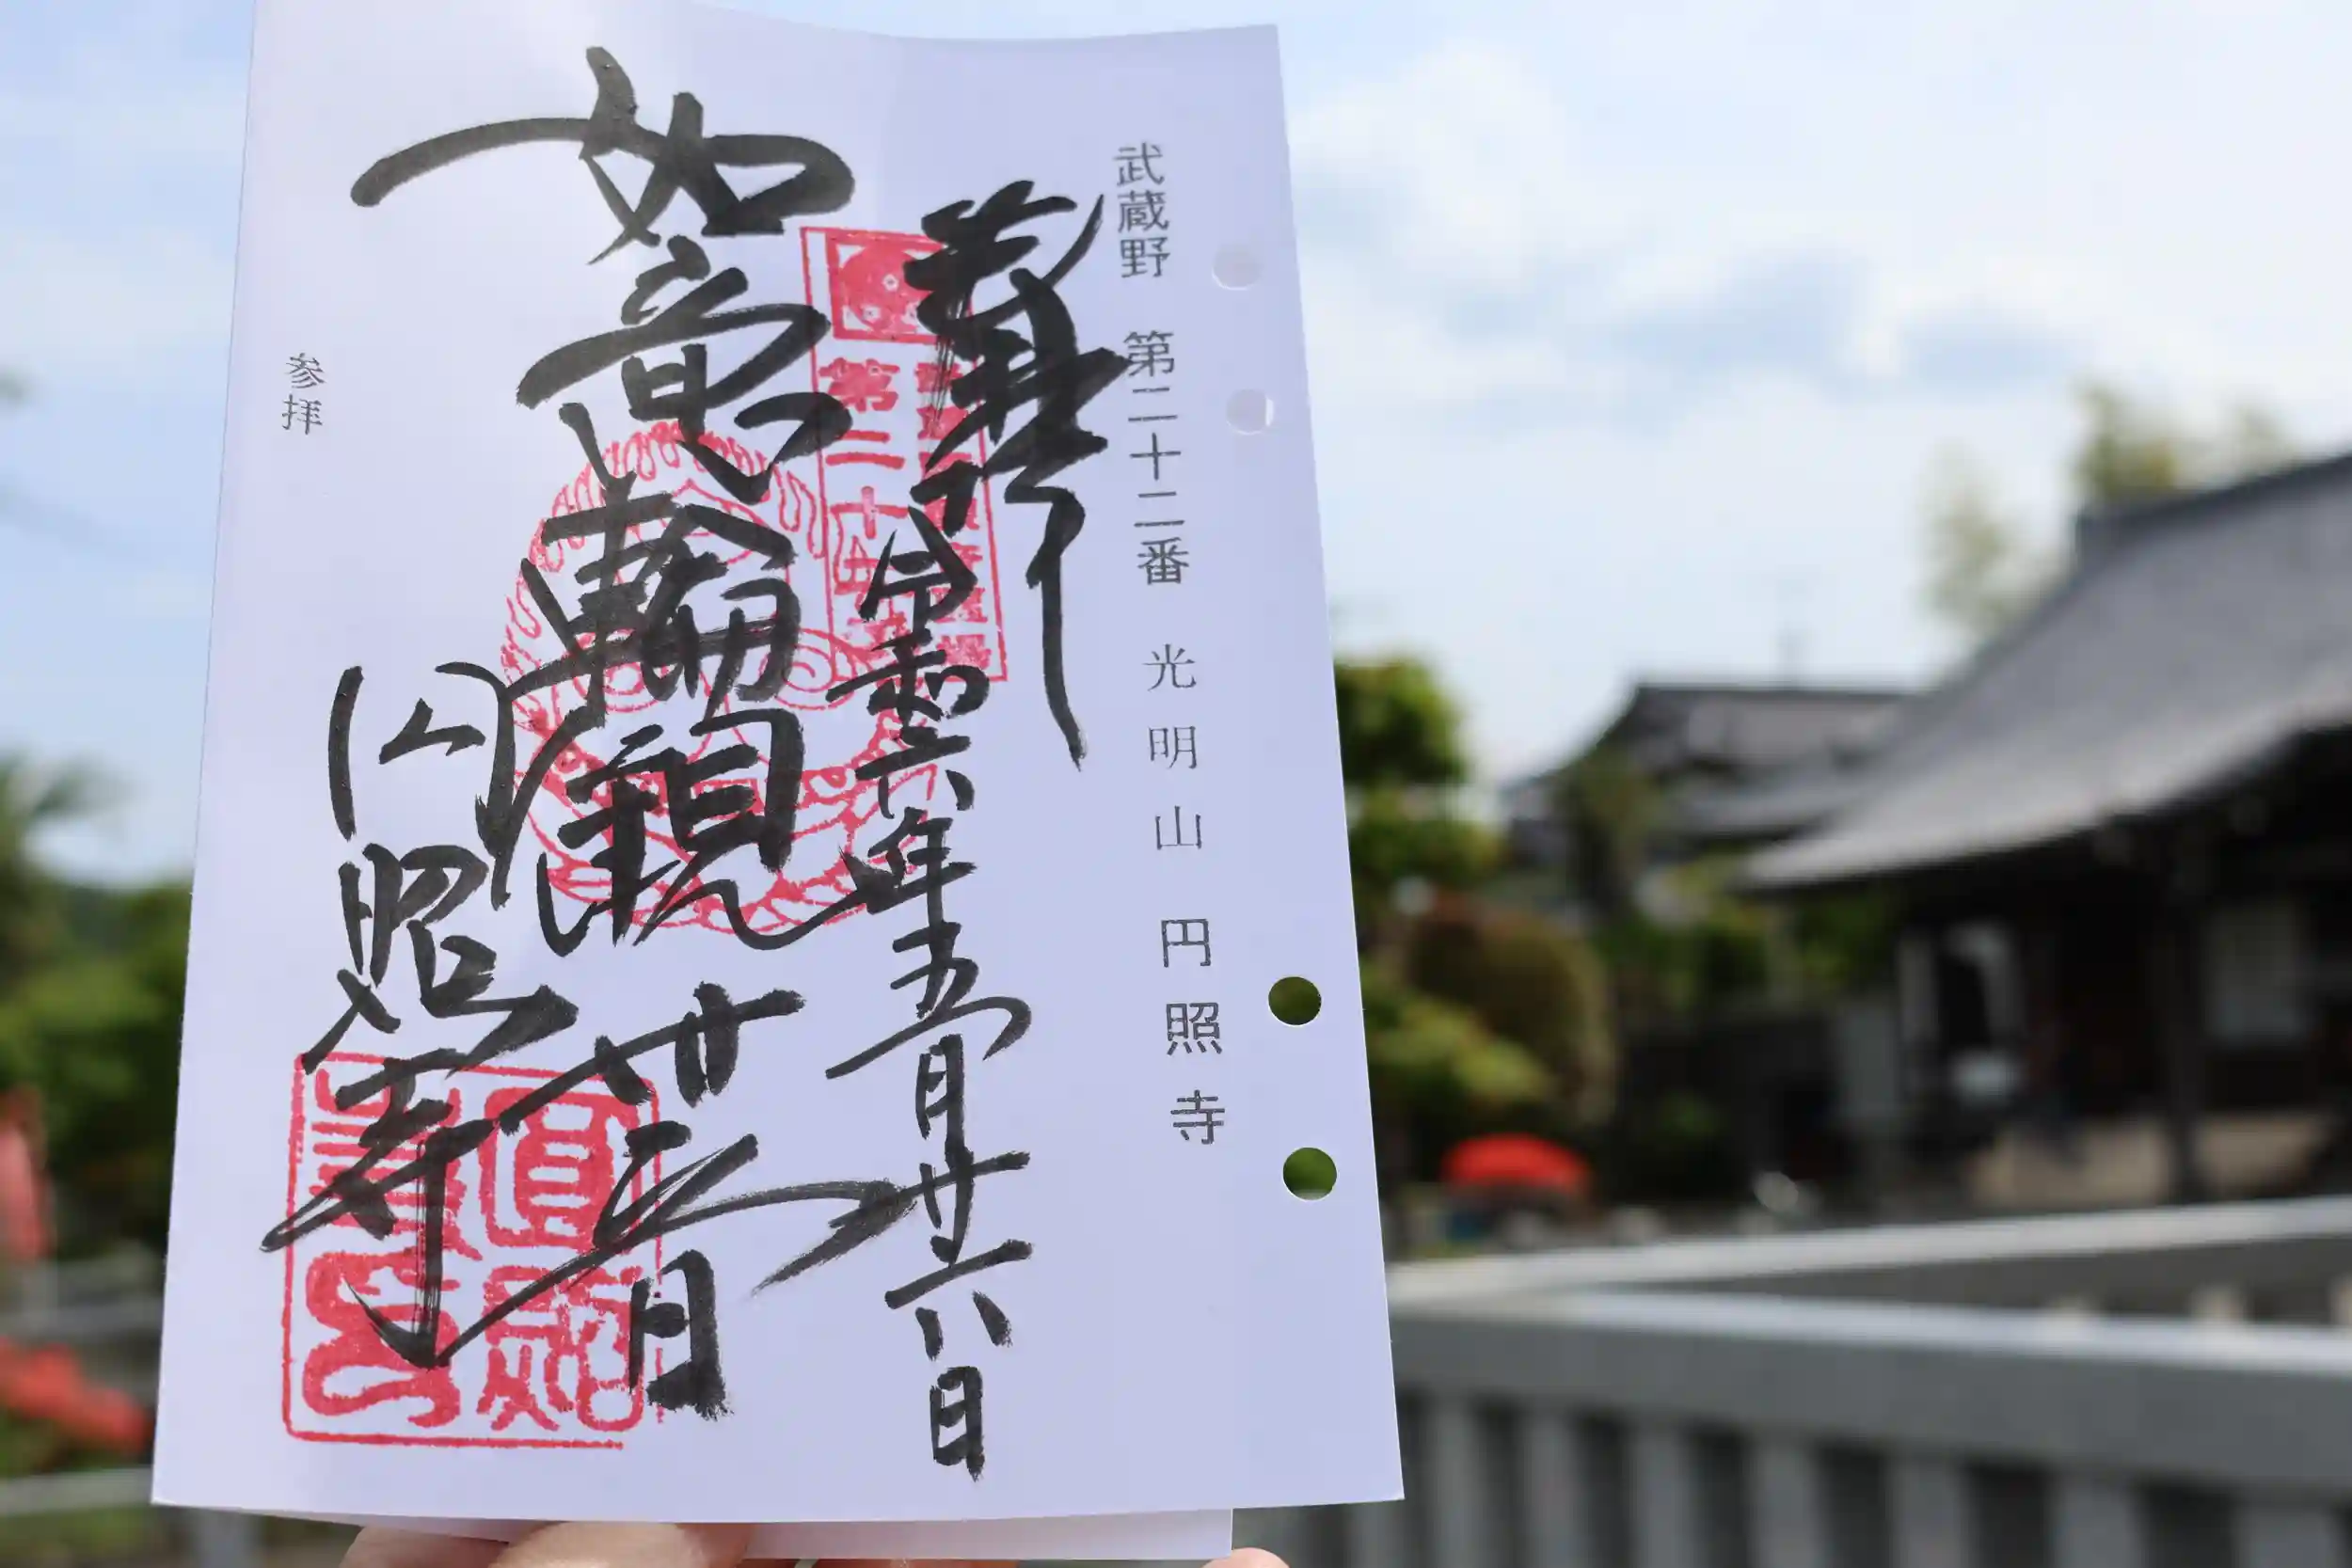 武蔵野 第二十二番 光明山 円照寺
奉拝
令和六年五月廿六日
如意輪観世音
円照寺
参拝
第二十二